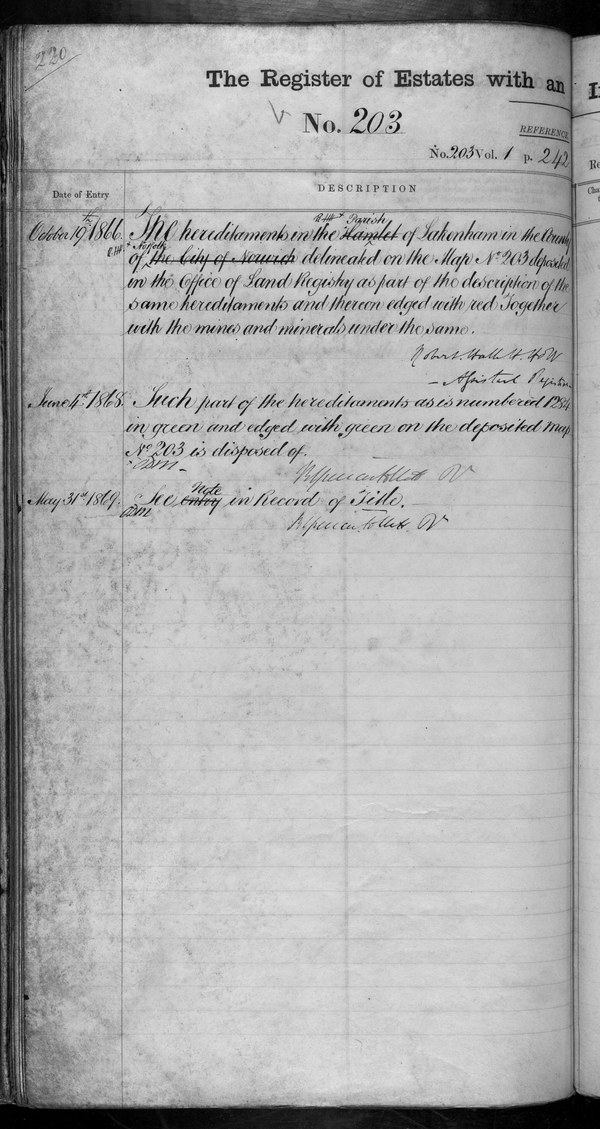 220
The Register of Estates with an
No. 203
REFERENCE
No. 203 Vol. 1 p. 242
Date of Entry
DESCRIPTION
Parish
October 19th 1866. The hereditaments in the Hamlet of Lakenham in the County
Norfolk
of the City of Norwich delineated on the Map No 203 deposited
in the Office of Land Registry as part of the description of the
same hereditaments and thereon edged with red Together
with the mines and minerals under the same.
Assistant Registrar
June 4th 1868. Such part of the hereditaments as is numbered 1284
in green and edged with green on the deposited Map
No 203 is disposed of.
Note
May 31st 1869. See entry in Record of Title.